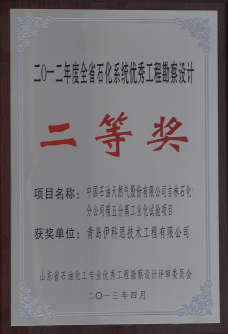 二〇一二年度全省石化系统优秀工程勘察设计
二等奖
项目名称：中国石油天然气股份有限公司吉林石化
分公司碳五分离工业化试验项目
获奖单位：青岛伊科思技术工程有限公司
山东省石油化工专业优秀工程勘察设计评审委员会
二〇一三年四月